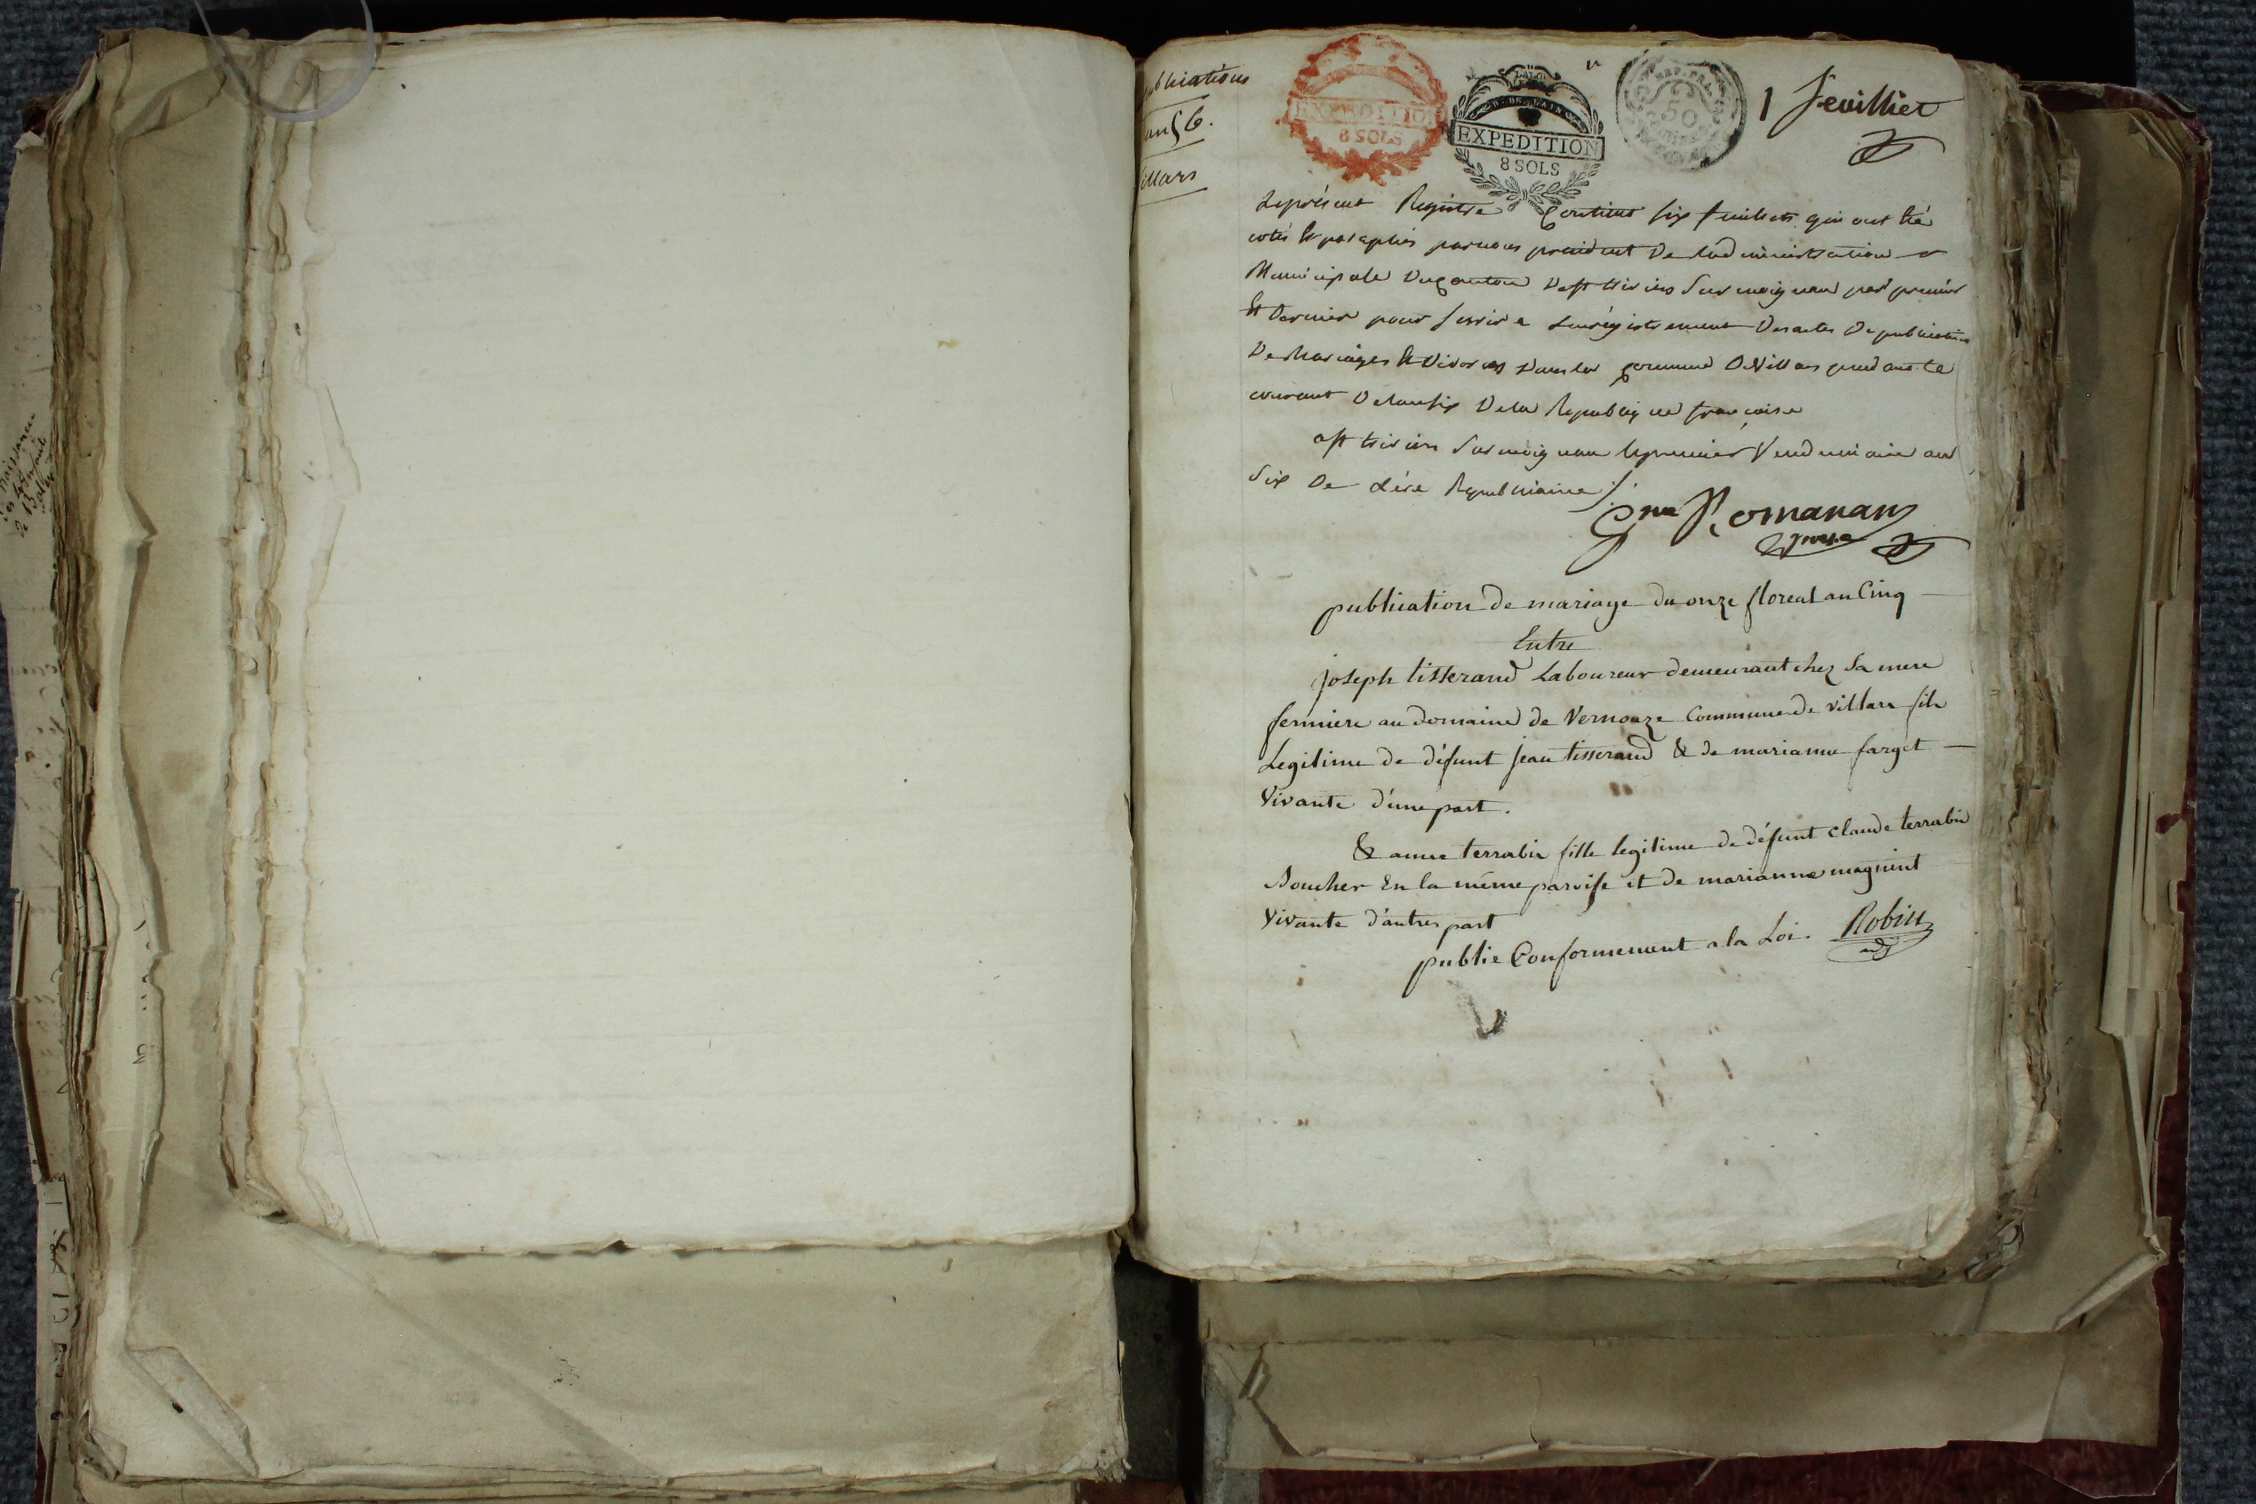 publications
an 6.
villars
EXPEDITION
8 SOLS
EXPEDITION
8 SOLS
50
1 feuillet
Le présent Registre contient six feuillets qui ont été
cotés et paraphés par nous président de l'administration
Municipale du canton de st trivier sur moignans par premier
et dernier pour servir a l'enregistrement des actes de publications
de Mariages et divorces dans la commune de Villars pendant le
courant de l'an six de la Republique françoise
a st trivier sur moignans le premier Vendemiaire an
Six de l'ére Republicaine ./.
Romanans
publication de mariage du onze floreal an Cinq
Entre
joseph tisserand Laboureur demeurant chez sa mere
fermiere au domaine de Vernouze Commune de villars fils
Legitime de défunt jean tisserand & de marianne farget
Vivante d'une part.
& anne terrabin fille legitime de défunt claude terrabin
Boucher En la même paroisse et de marianne magnint
Vivante d'autres part
publie Conformement a la Loi. Robin
naissances